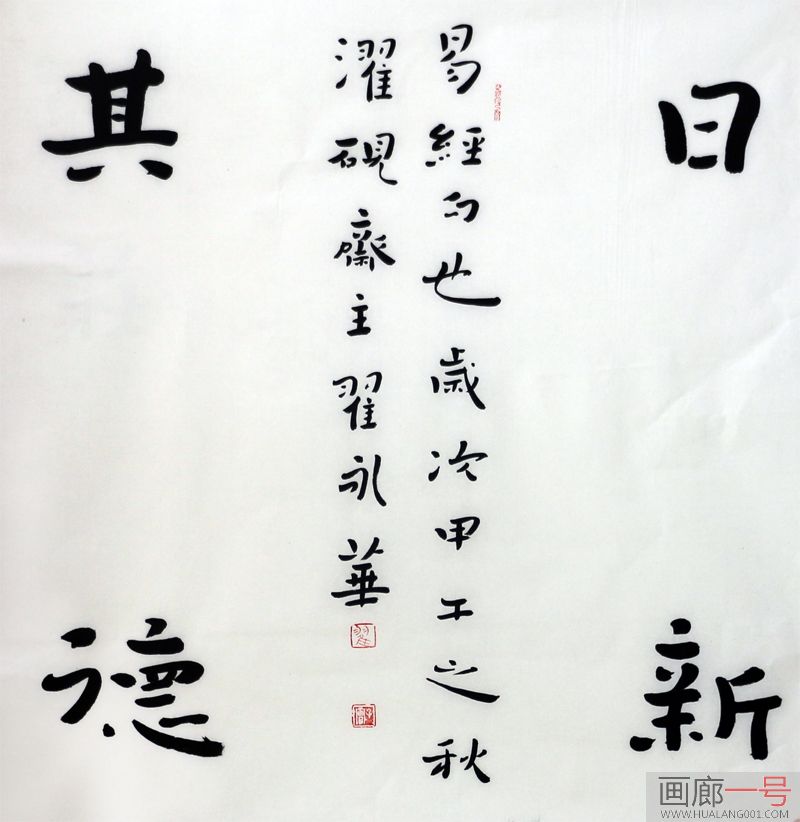 日新
易經句也歲次甲午之秋
濯硯齋主翟永華
其德
画廊一号
WWW.HUALANG001.COM